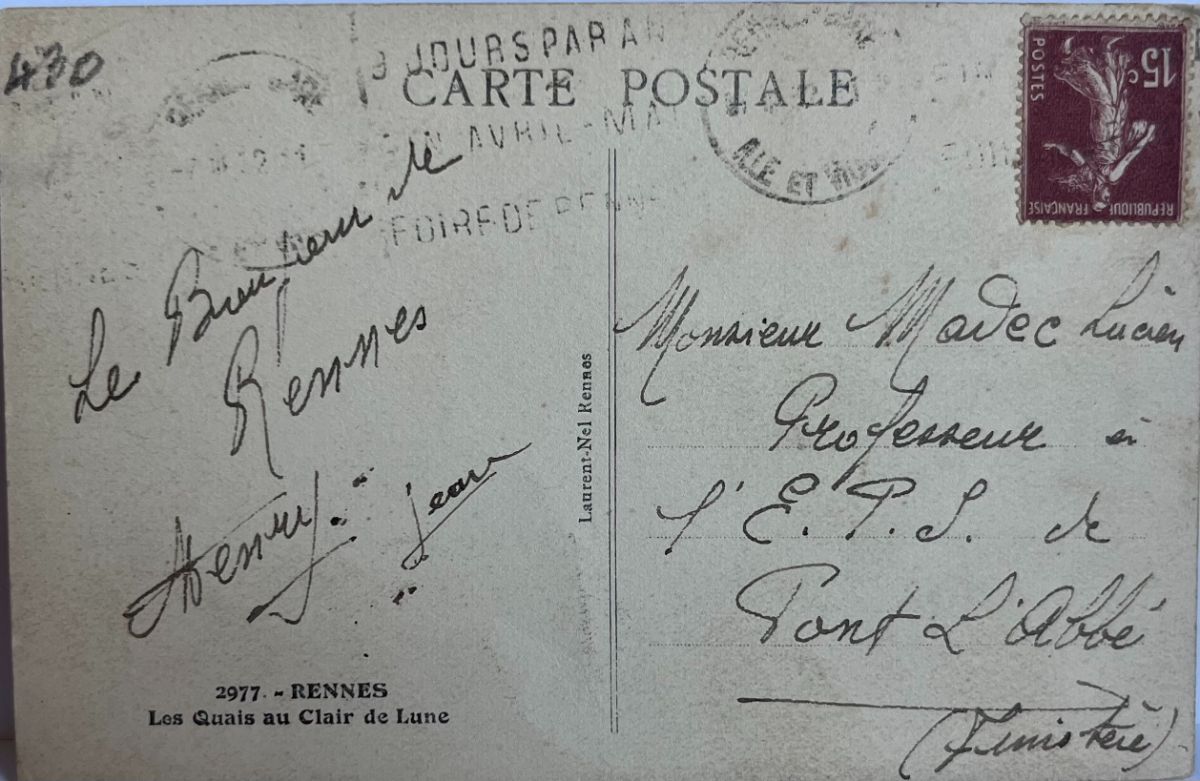 430
3 JOURS PAR AN
CARTE POSTALE
FIN AVRIL-MAI
FOIRE DE RENNES
ILLE ET VILAINE
15c
POSTES
REPUBLIQUE FRANÇAISE
Le Bonjour de
Rennes
Henry
"Jean"
Laurent-Nel Rennes
Monsieur Madec Lucien
Professeur à
l'E.P.S. de
Pont L'Abbé
(Finistère)
2977. - RENNES
Les Quais au Clair de Lune